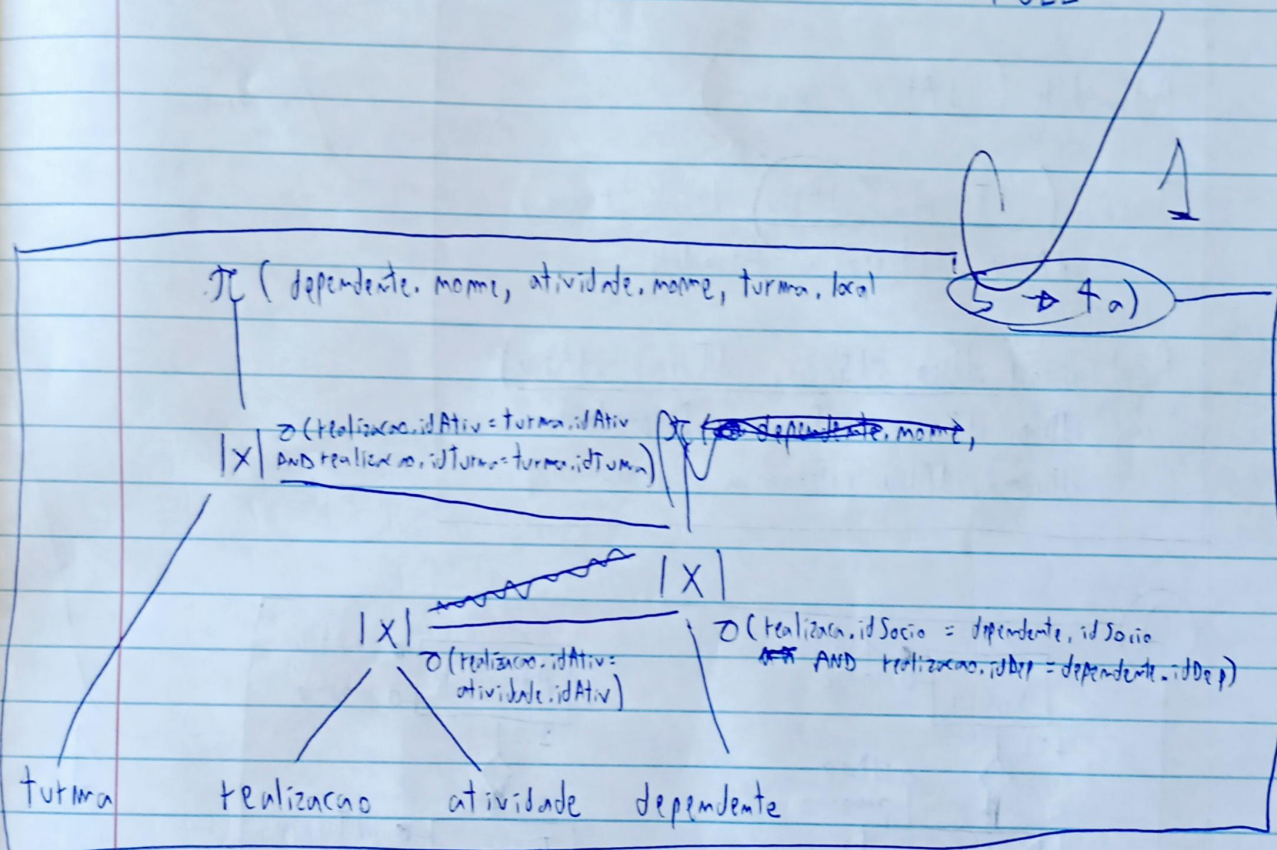 1
π ( dependente.nome, atividade.nome, turma.local
5 → 4a)
σ(realizacao.idAtiv = turma.idAtiv
|X| AND realizacao.idTurma = turma.idTurma)
π ( dependente.nome,
|X|
|X|
σ(realizaca.idSocio = dependente.idSocio
AND realizacao.idDep = dependente.idDep)
σ(realizacao.idAtiv =
atividade.idAtiv)
turma realizacao atividade dependente